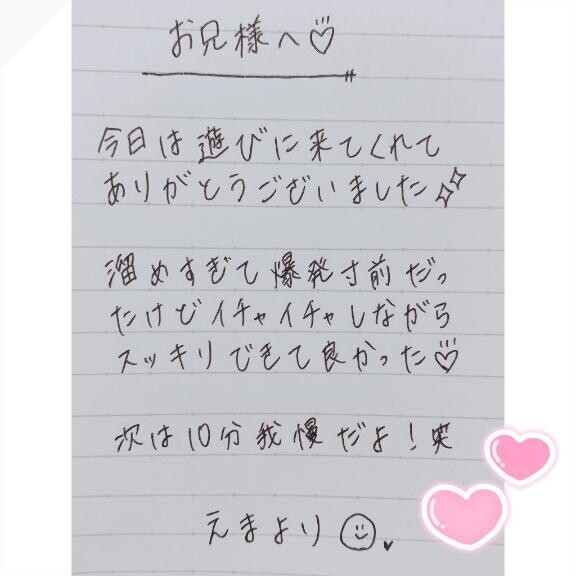 お兄様へ♡
今日は遊びに来てくれて
ありがとうございました✨
溜めすぎて爆発寸前だっ
たけどイチャイチャしながら
スッキリできて良かった♡
次は10分我慢だよ！笑
えまより☺